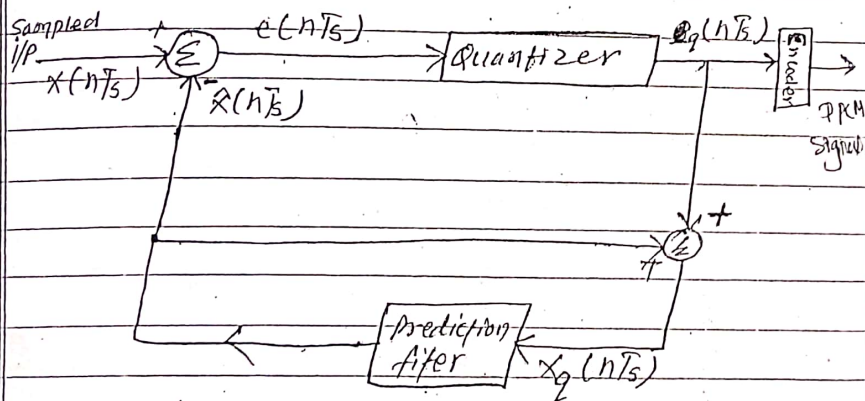 Sampled
i/P
x(nTs)
+
Σ
e(nTs)
Quantizer
eq(nTs)
Encoder
DPCM
Signal
-
x̂(nTs)
+
Σ
+
Prediction
fifer
xq(nTs)